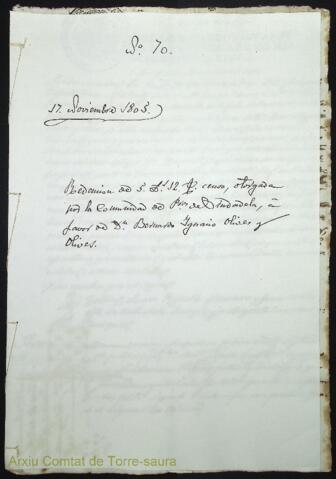 Nº 70.
17. Noviembre 1805.
Redencion de 5. 12. censo, otorgada
por la Comunidad de de Ciudadela, á
favor de Dn. Bernardo Ignacio Olives y
Olives.
Arxiu Comtat de Torre-saura